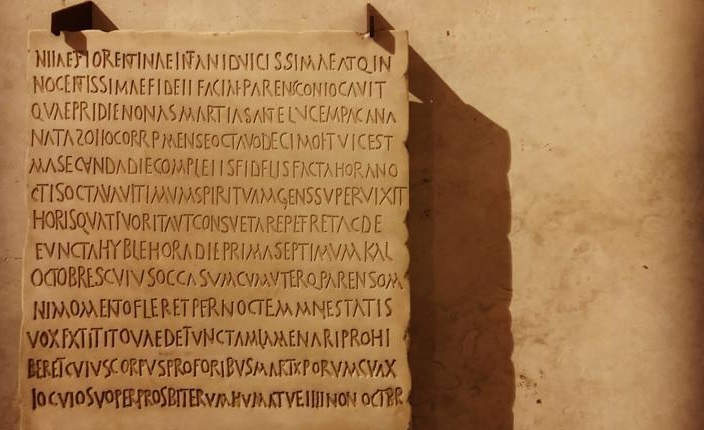 NIIAEFIOREITINAEINFANIDVICISSIMAEATQIN
NOCEITISSIMAEFIDEIIFACIAIPARENSCONIOCAVIT
QVAEPRIDIENONASMARTIASANTELVCEMPACANA
NATAZOIIOCORRPMENSEOCTAVODECIMOETVICEST
MASECVNDADIECOMPLEIISFIDELISFACTAHORANO
CTISOCTAVAVITIMVMSPIRITVAMGENSSVPERVIXIT
HORISQVATTVORITAVTCONSVETAREPETRETACDE
FVNCTAHYBLEHORADIEPRIMASEPTIMVMKAL
OCTOBRESCVIVSOCCASVMCVMVTERQPARENSOM
NIMOMENTOFLERETPERNOCTEMMAIESTATIS
VOXEXTITITQVAEDEFVNCTAMLAMENARIPROHI
BERETCVIVSCORPVSPROFORIBVSMARTXPORVMCVAX
IOCVIOSVOPERPROSBITERVMHVMATVEIIIINONOCTBR